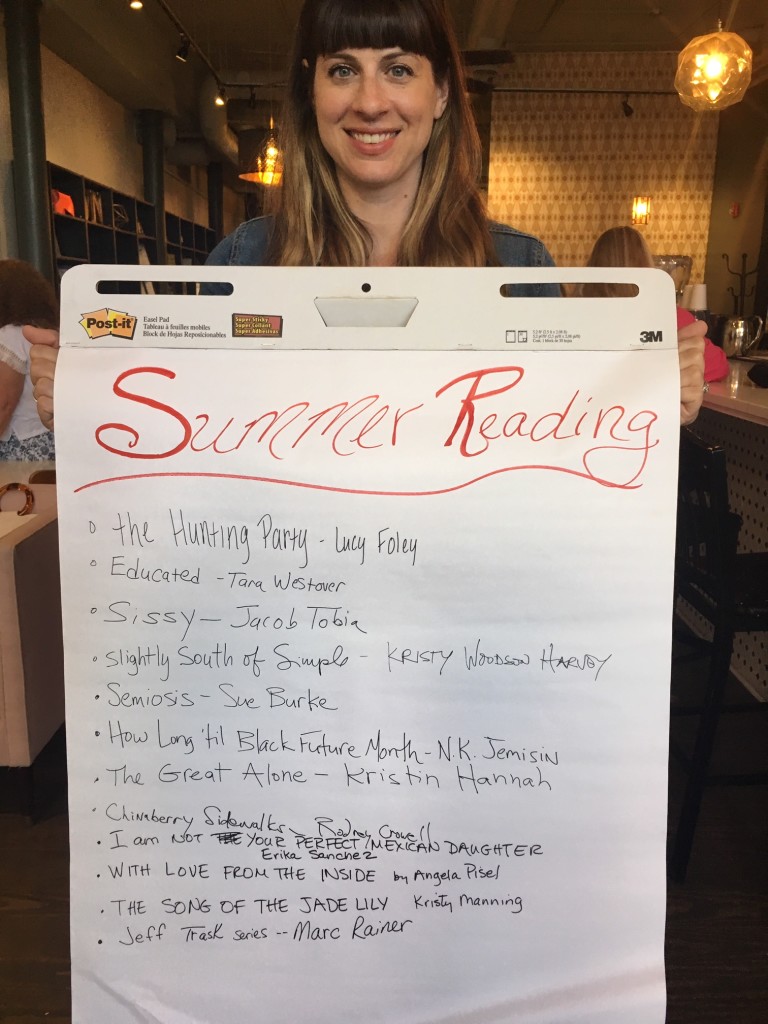 Post-it
Easel Pad
Tableau à feuilles mobiles
Block de Hojas Reposicionables
Super Sticky
Super Collant
Super Adhesivas
3M
Summer Reading
the Hunting Party - Lucy Foley
Educated - Tara Westover
Sissy - Jacob Tobia
Slightly South of Simple - KRISTY WOODSON HARVEY
Semiosis - Sue Burke
How Long 'til Black Future Month - N.K. Jemisin
The Great Alone - Kristin Hannah
Chinaberry Sidewalks - Rodney Crowell
I am NOT YOUR PERFECT MEXICAN DAUGHTER
Erika Sanchez
WITH LOVE FROM THE INSIDE by Angela Pisel
THE SONG OF THE JADE LILY Kristy Manning
Jeff Trask series -- Marc Rainer